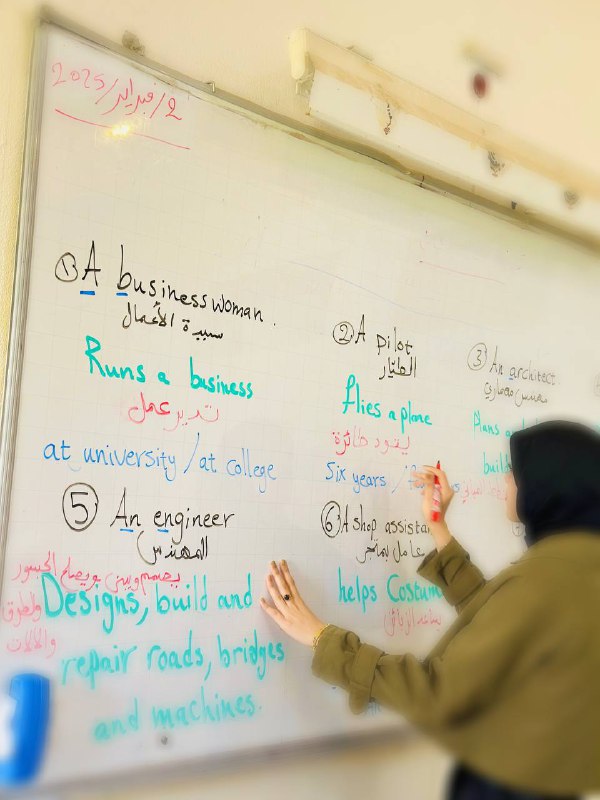 2/فبراير/2025
① A businesswoman.
سيدة الأعمال
Runs a business
تدير عمل
at university / at college
② A pilot
الطيّار
flies a plane
يقود طائرة
Six years /
③ An architect
مهندس معماري
Plans
build
⑤ An engineer
المهندس
يصمم ويبني ويصلح الجسور
والطرق
والآلات
Designs, build and
repair roads, bridges
and machines.
⑥ A shop assista
عامل بمتجر
helps Costum
يساعد الزبائن